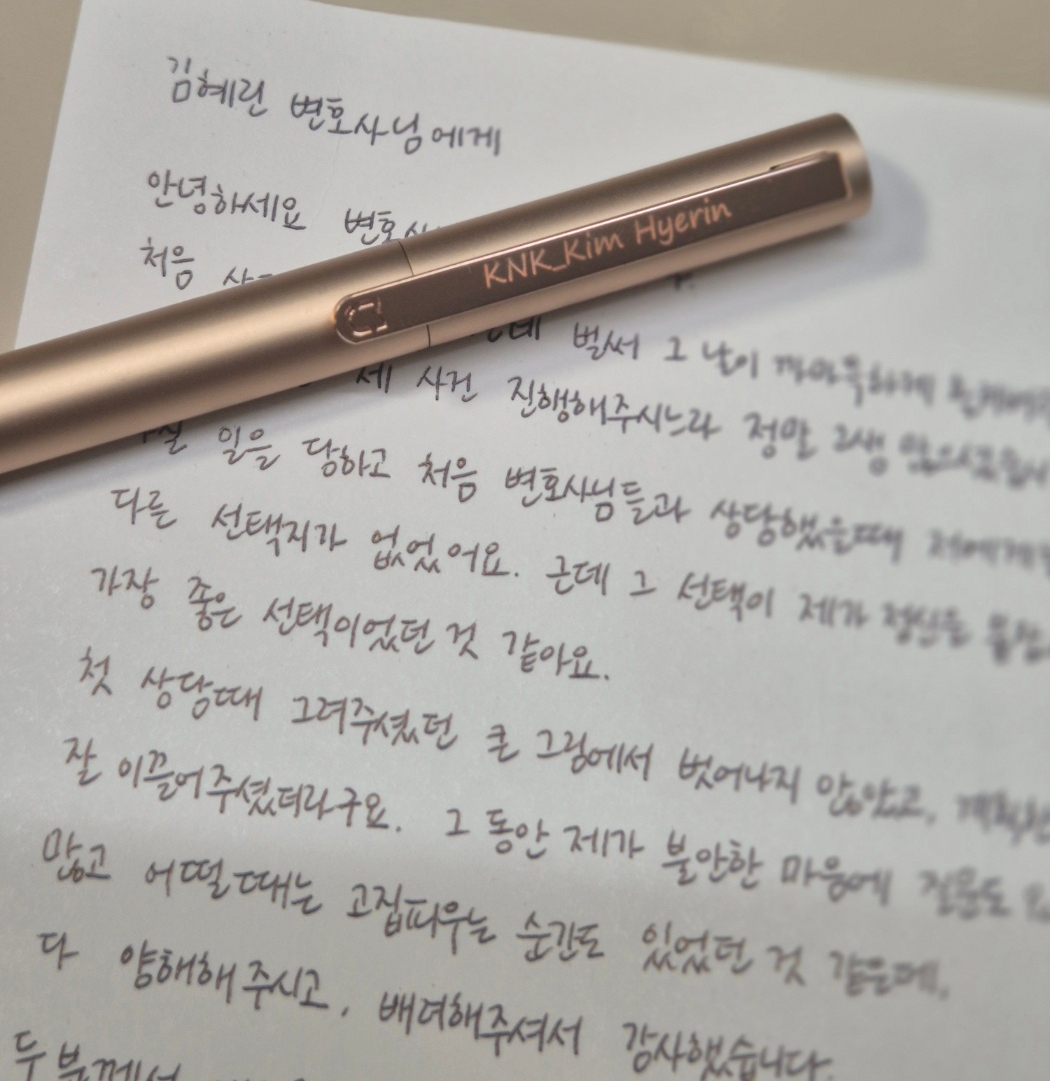 김혜린 변호사님에게
안녕하세요 변호사
처음
KNK_Kim Hyerin
벌써 그 날이 까마득하게
제 사건 진행해주시느라 정말 고생 많으셨습니다
일을 당하고 처음 변호사님들과 상담했을때 저에게
다른 선택지가 없었어요. 근데 그 선택이 제가 정신을
가장 좋은 선택이었던 것 같아요.
첫 상담때 그려주셨던 큰 그림에서 벗어나지 않았고, 계획한
잘 이끌어주셨더라구요. 그 동안 제가 불안한 마음에 질문도
많고 어떨때는 고집피우는 순간도 있었던 것 같은데,
다 양해해주시고, 배려해주셔서 감사했습니다.
두분께서